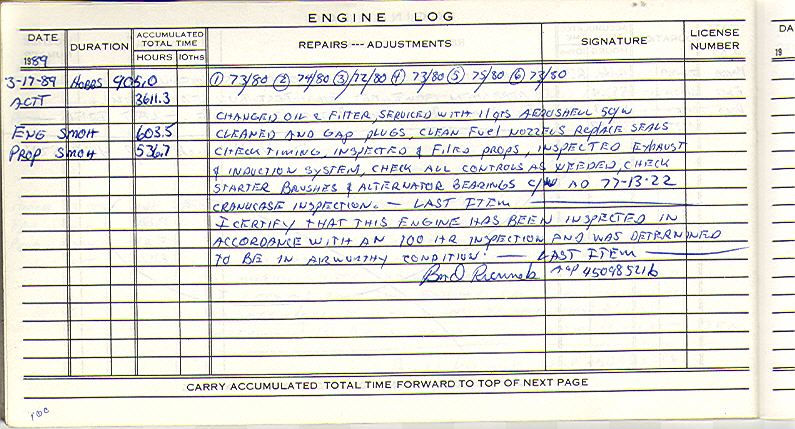 ENGINE LOG
DATE DURATION ACCUMULATED TOTAL TIME HOURS 10THS REPAIRS --- ADJUSTMENTS SIGNATURE LICENSE NUMBER DA
1989 19
3-17-89 HOBBS 905.0 ① 73/80 ② 74/80 ③ 72/80 ④ 73/80 ⑤ 75/80 ⑥ 73/80
ACTT 3611.3
CHANGED OIL & FILTER, SERVICED WITH 11 QTS AEROSHELL 50W
ENG SMOH 603.5 CLEANED AND GAP PLUGS, CLEAN FUEL NOZZELS REPLACE SEALS
PROP SMOH 536.7 CHECK TIMING, INSPECTED & FILED PROPS, INSPECTED EXHAUST
& INDUCTION SYSTEM, CHECK ALL CONTROLS AS NEEDED, CHECK
STARTER BRUSHES & ALTERNATOR BEARINGS C/W AD 77-13-22
CRANKCASE INSPECTION. — LAST ITEM
I CERTIFY THAT THIS ENGINE HAS BEEN INSPECTED IN
ACCORDANCE WITH AN 100 HR INSPECTION AND WAS DETERMINED
TO BE IN AIRWORTHY CONDITION. — LAST ITEM
A&P 450985216
CARRY ACCUMULATED TOTAL TIME FORWARD TO TOP OF NEXT PAGE